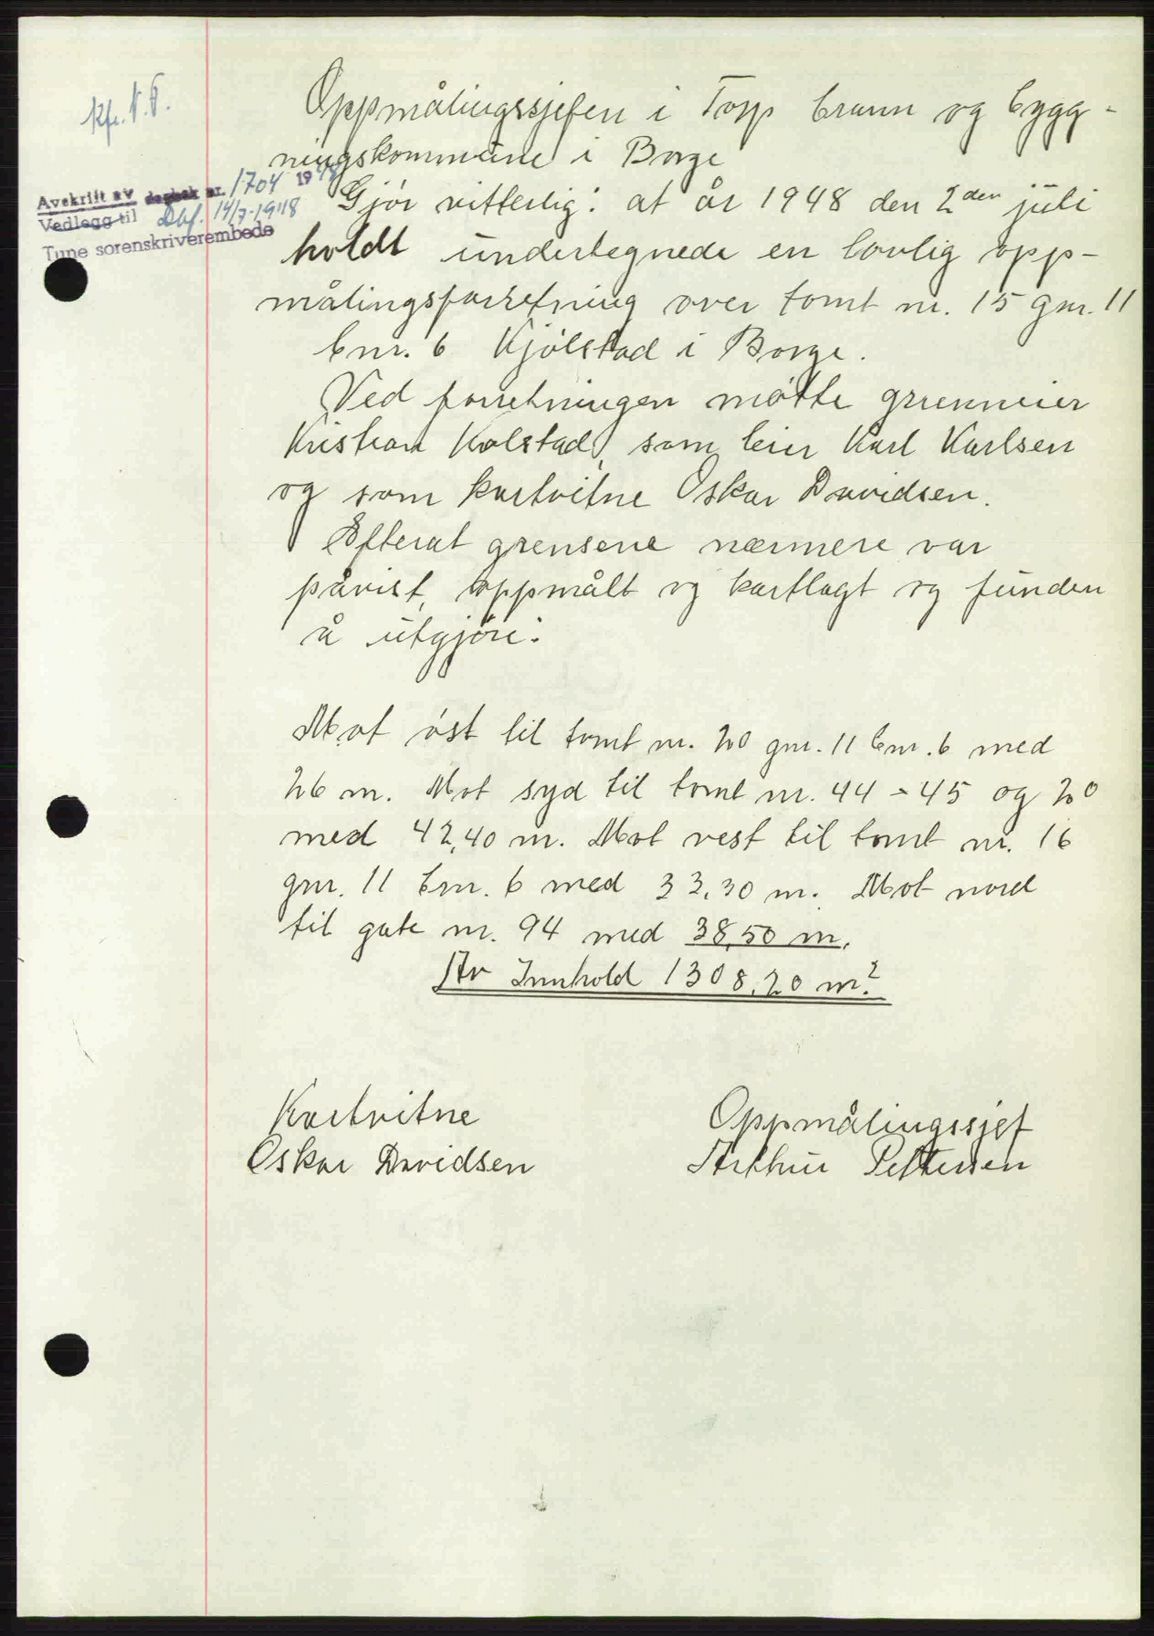 kfr. N.B.
Avskrift av dagbok nr. 1704 1948
Vedlegg til Dbf. 14/7-1948
Tune sorenskriverembede
Oppmålingssjefen i Torp brann og bygg-
ningskommune i Borge
Gjør vitterlig: at år 1948 den 2den juli
holdt undertegnede en lovlig opp-
målingsforretning over tomt nr. 15 gnr. 11
bnr. 6 Kjølstad i Borge.
Ved forretningen møtte grunneier
Kristian Kolstad, som leier Karl Karlsen
og som kartvitne Oskar Davidsen.
Efterat grensene nærmere var
påvist, oppmålt og kartlagt og funden
å utgjøre:
Mot øst til tomt nr. 20 gnr. 11 bnr. 6 med
26 m. Mot syd til tomt nr. 44 - 45 og 20
med 42,40 m. Mot vest til tomt nr. 16
gnr. 11 bnr. 6 med 33,30 m. Mot nord
til gate nr. 94 med 38,50 m.
Av Innhold 1308,20 m.2
Kartvitne
Oskar Davidsen
Oppmålingssjef
Arthur Pettersen